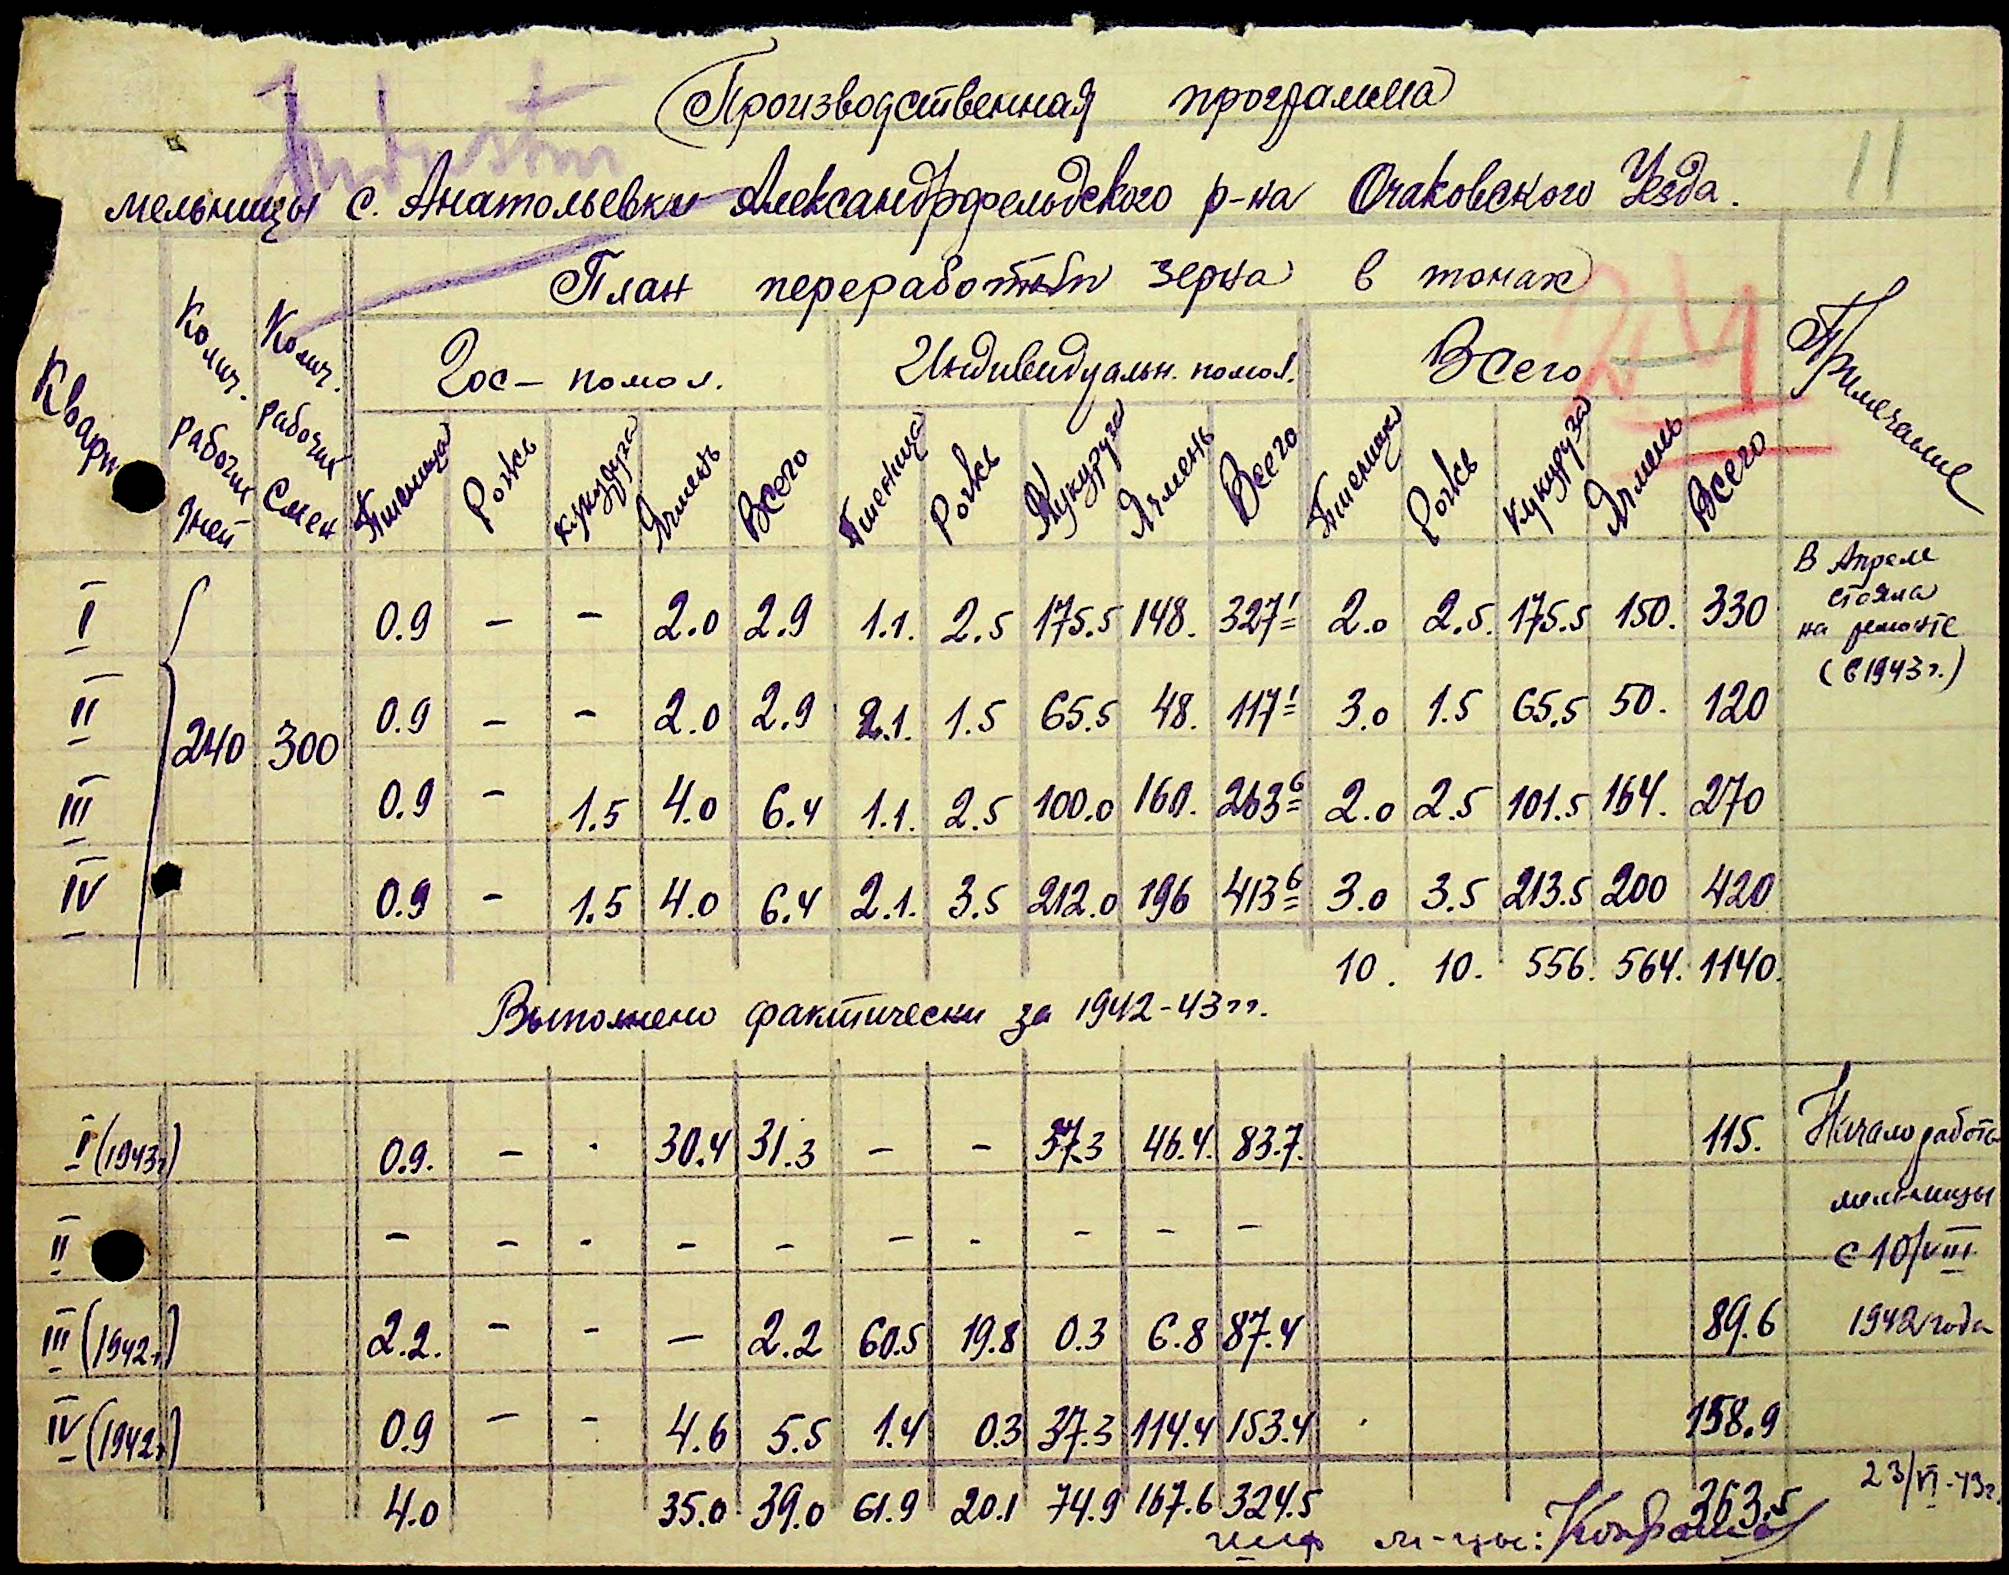 Производственная программа
мельницы с. Анатольевки Александрфельдского р-на Очаковского Уезда.
11
План переработки зерна в тонах
Кварт
Колич. рабочих дней
Колич. рабочих смен
Гос-помол.
Индивидуальн. помол.
Всего
Примечание
Пшеница Рожь кукуруза Ячмень Всего Пшеница Рожь Кукуруза Ячмень Всего Пшеница Рожь Кукуруза Ячмень Всего
I 0.9 – – 2.0 2.9 1.1. 2.5 175.5 148. 327¹ 2.0 2.5. 175.5 150. 330
В Апреле
стояла
на ремонте
(в 1943 г.)
II 0.9 – – 2.0 2.9 2.1. 1.5 65.5 48. 117¹ 3.0 1.5 65.5 50. 120
240 300
III 0.9 – 1.5 4.0 6.4 1.1. 2.5 100.0 160. 263⁶ 2.0 2.5 101.5 164. 270
IV 0.9 – 1.5 4.0 6.4 2.1. 3.5 212.0 196 413⁶ 3.0 3.5 213.5 200 420
10. 10. 556. 564. 1140.
Выполнено фактически за 1942-43 гг.
I (1943г) 0.9. – · 30.4 31.3 – – 37.3 46.4. 83.7. 115.
Начало работы
мельницы
с 10/VIII
1942 года
II – – - – – – - – – –
III (1942г) 2.2. – – — 2.2 60.5 19.8 0.3 6.8 87.4 89.6
IV (1942г) 0.9 – - 4.6 5.5 1.4 0.3 37.3 114.4 153.4 158.9
4.0 35.0 39.0 61.9 20.1 74.9 167.6 324.5 363.5
23/VI-43г.
м-цы: